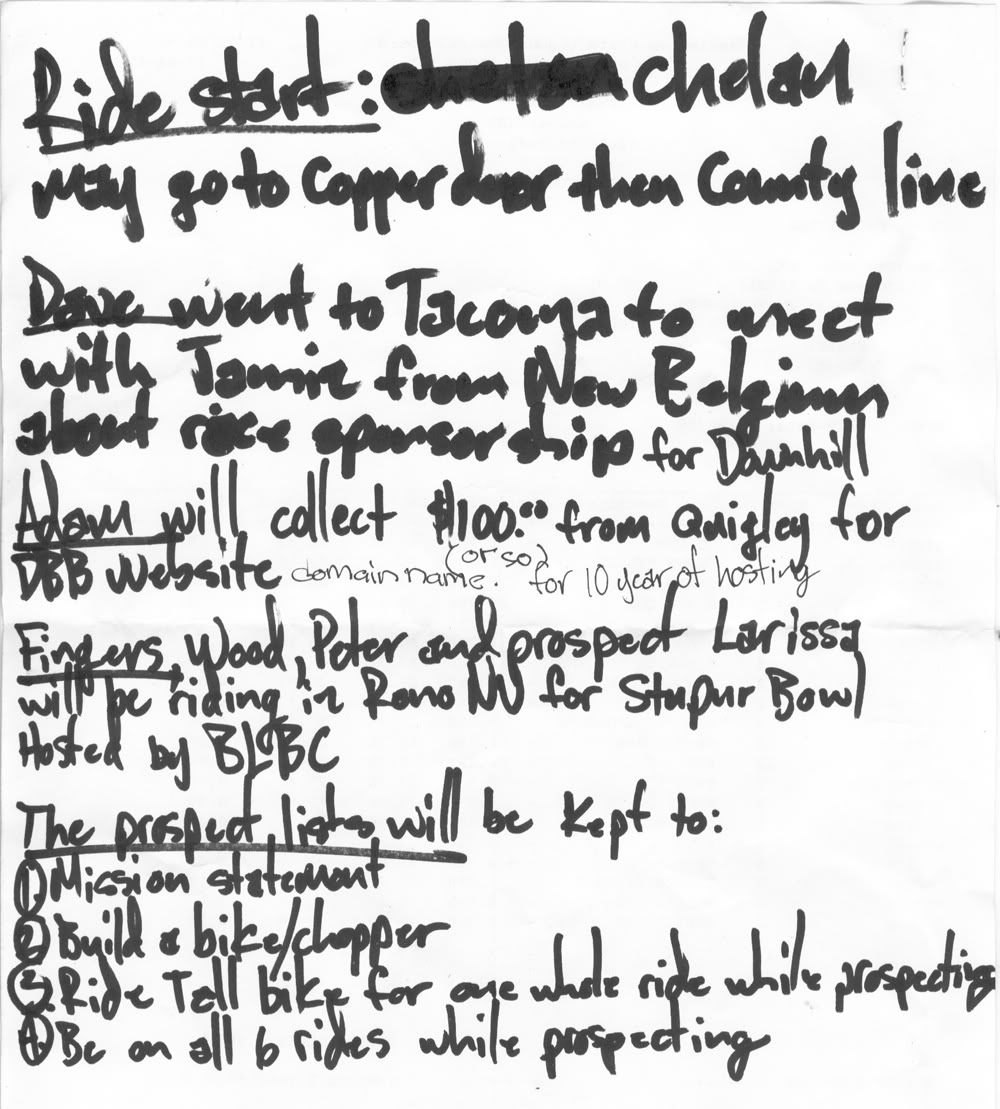 Ride start: chelan
may go to Copper door then County line
Dave went to Tacoma to meet
with Jamie from New Belgium
about race sponsorship for Downhill
Adam will collect $100.00 from Quigley for
(or so)
DBB Website domain name. for 10 year of hosting
Fingers, Wood, Peter and prospect Larissa
will be riding in Reno NV for Stupur Bowl
Hosted by BLBC
The prospect listes will be Kept to:
① Mission statement
② Build a bike/chopper
③ Ride Tall bike for one whole ride while prospecting
④ Be on all 6 rides while prospecting